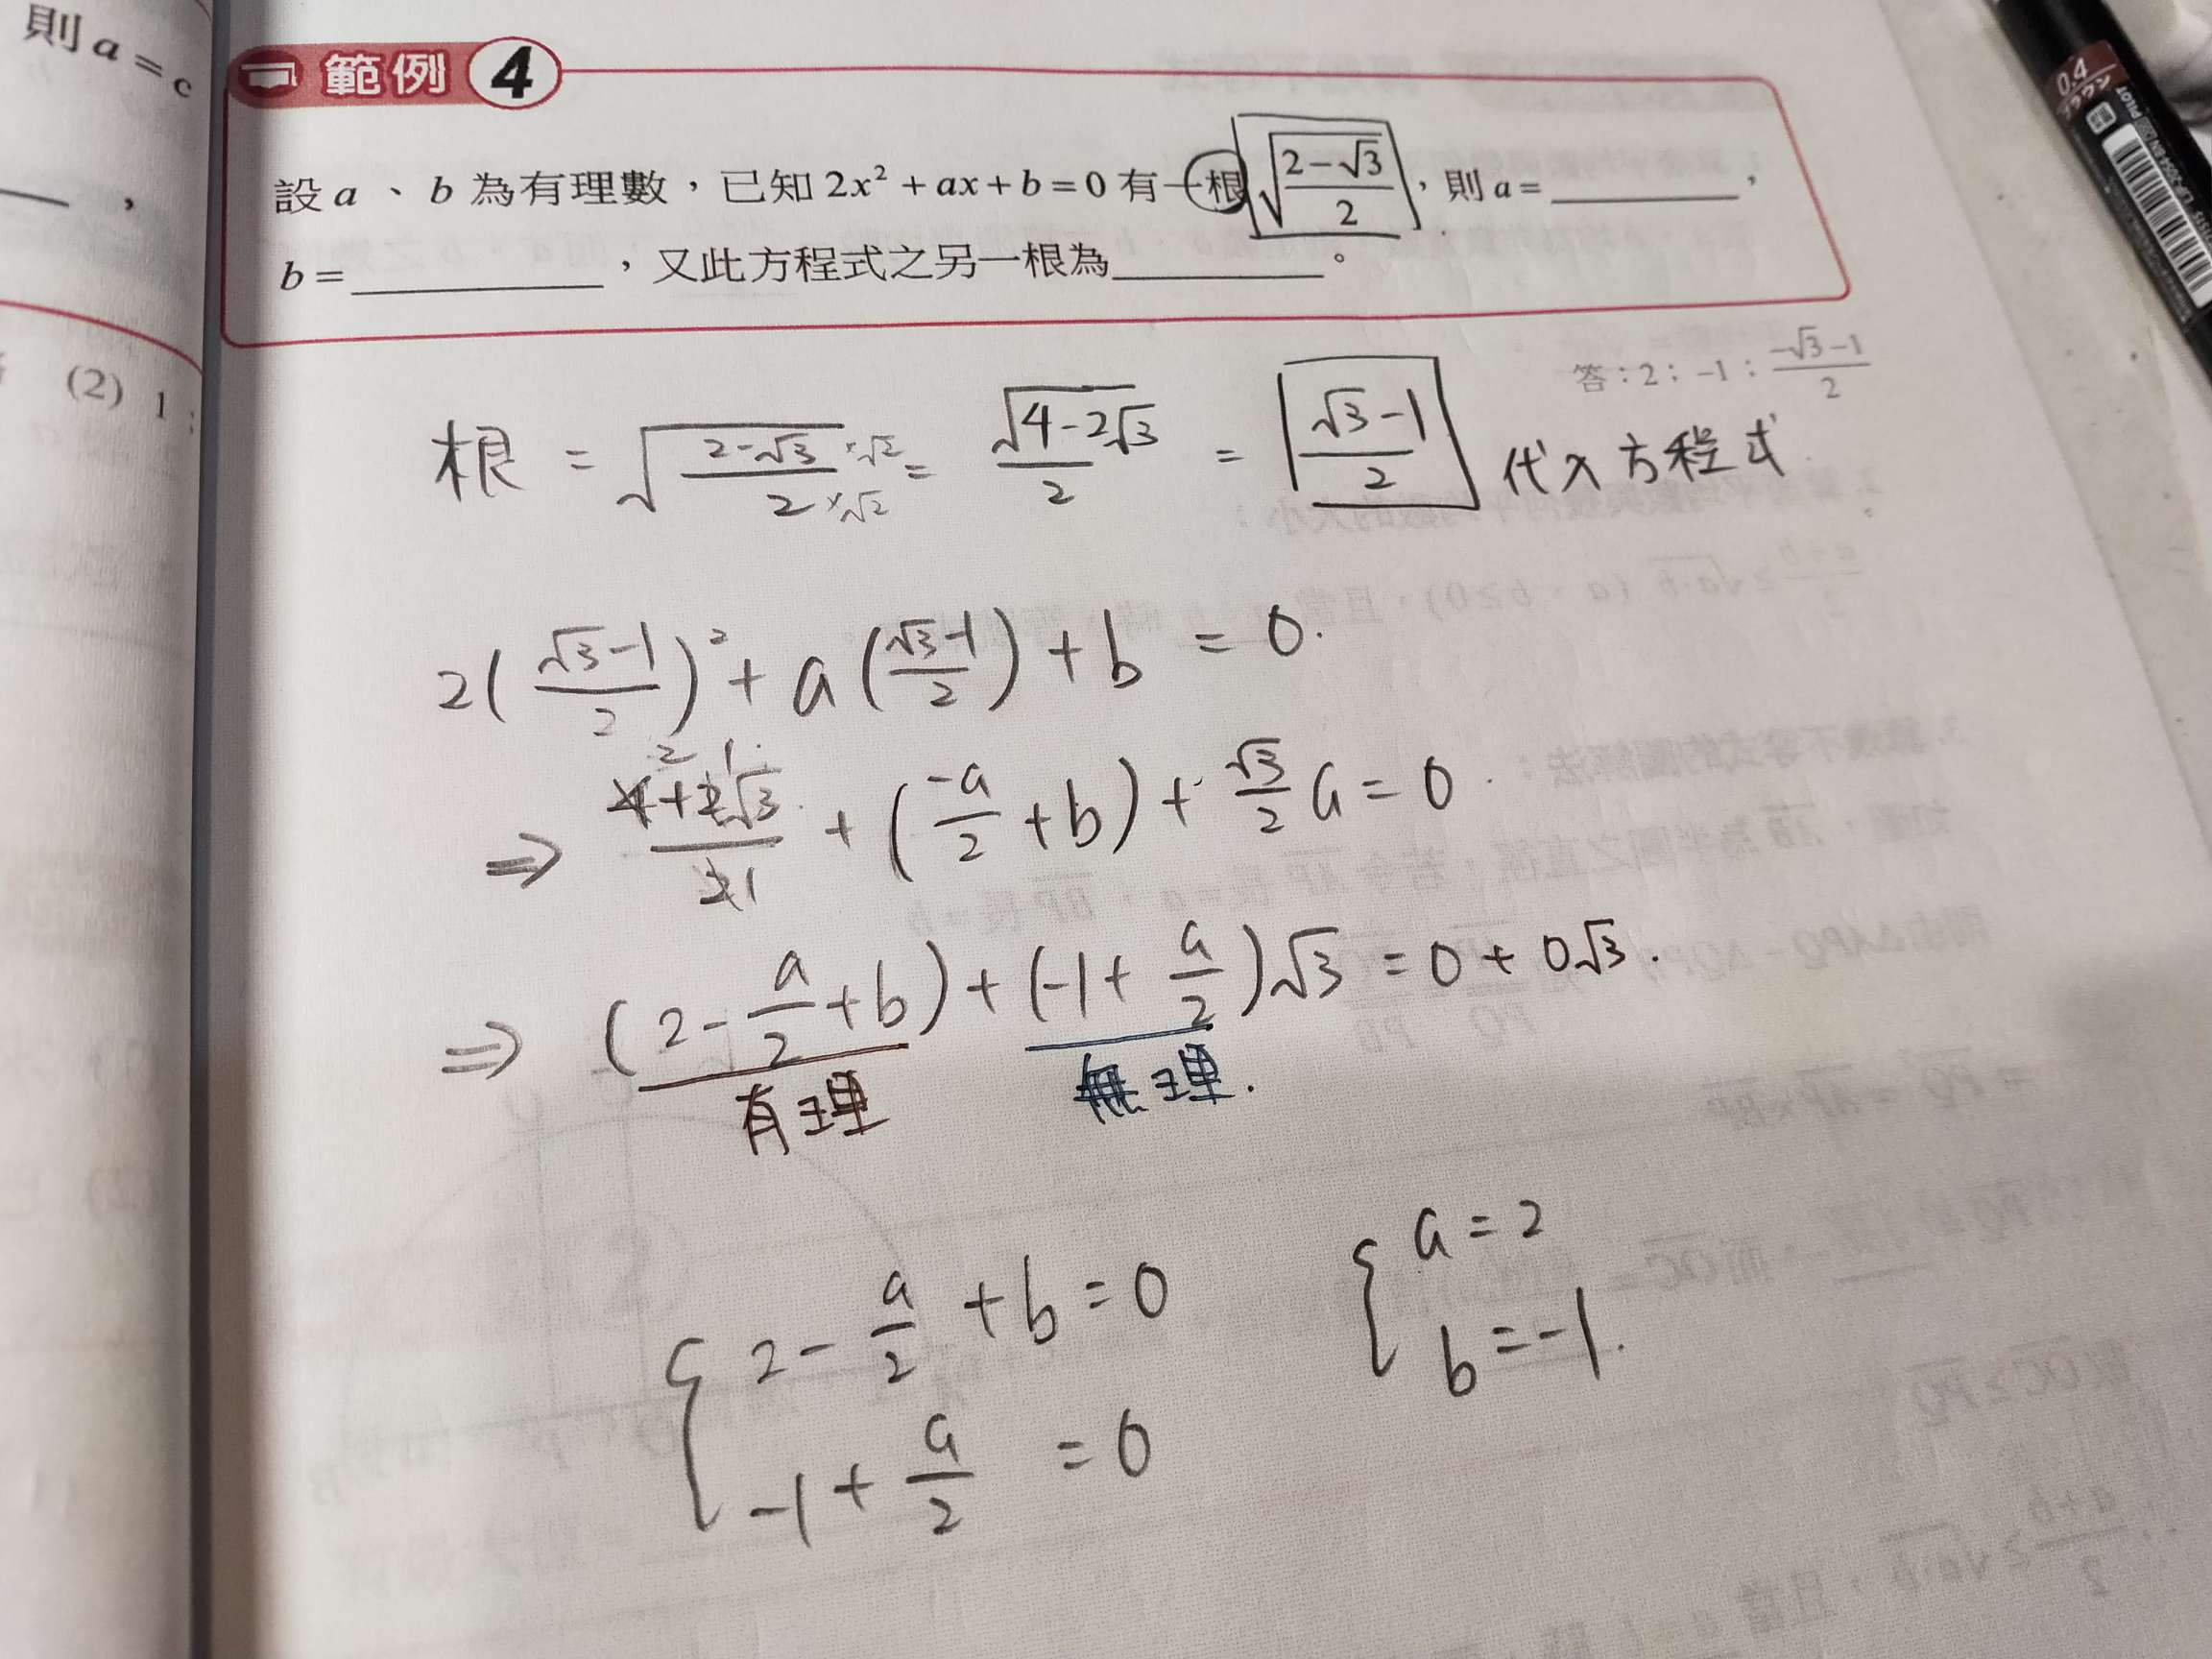 則 a = c
範例 4
設 a 、 b 為有理數，已知 2x² + ax + b = 0 有一根 √((2−√3)/2)，則 a = ________，
b = ________，又此方程式之另一根為________。
答：2；−1；(−√3−1)/2
(2) 1；
根 = √((2−√3)/2) ×√2 ×√2 = √(4−2√3)/2 = (√3−1)/2 代入方程式
2((√3−1)/2)² + a((√3−1)/2) + b = 0.
⇒ (4+2√3)/2 2 1 1 + (−a/2 + b) + √3/2 a = 0
⇒ (2 − a/2 + b) + (−1 + a/2)√3 = 0 + 0√3.
有理 無理.
{ 2 − a/2 + b = 0
−1 + a/2 = 0
{ a = 2
b = −1.
0.4
ブラウン
PILOT